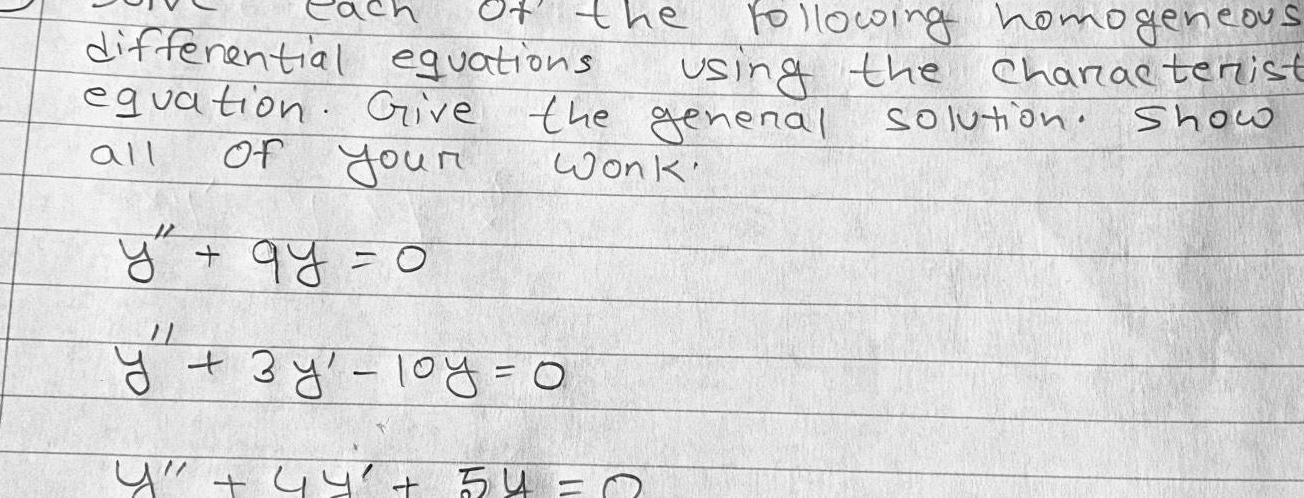 each of the following homogeneous
differential equations using the characterist
equation. Give the general solution. Show
all of your work.
y'' + 9y = 0
y'' + 3y' - 10y = 0
y'' + 4y' + 5y = 0